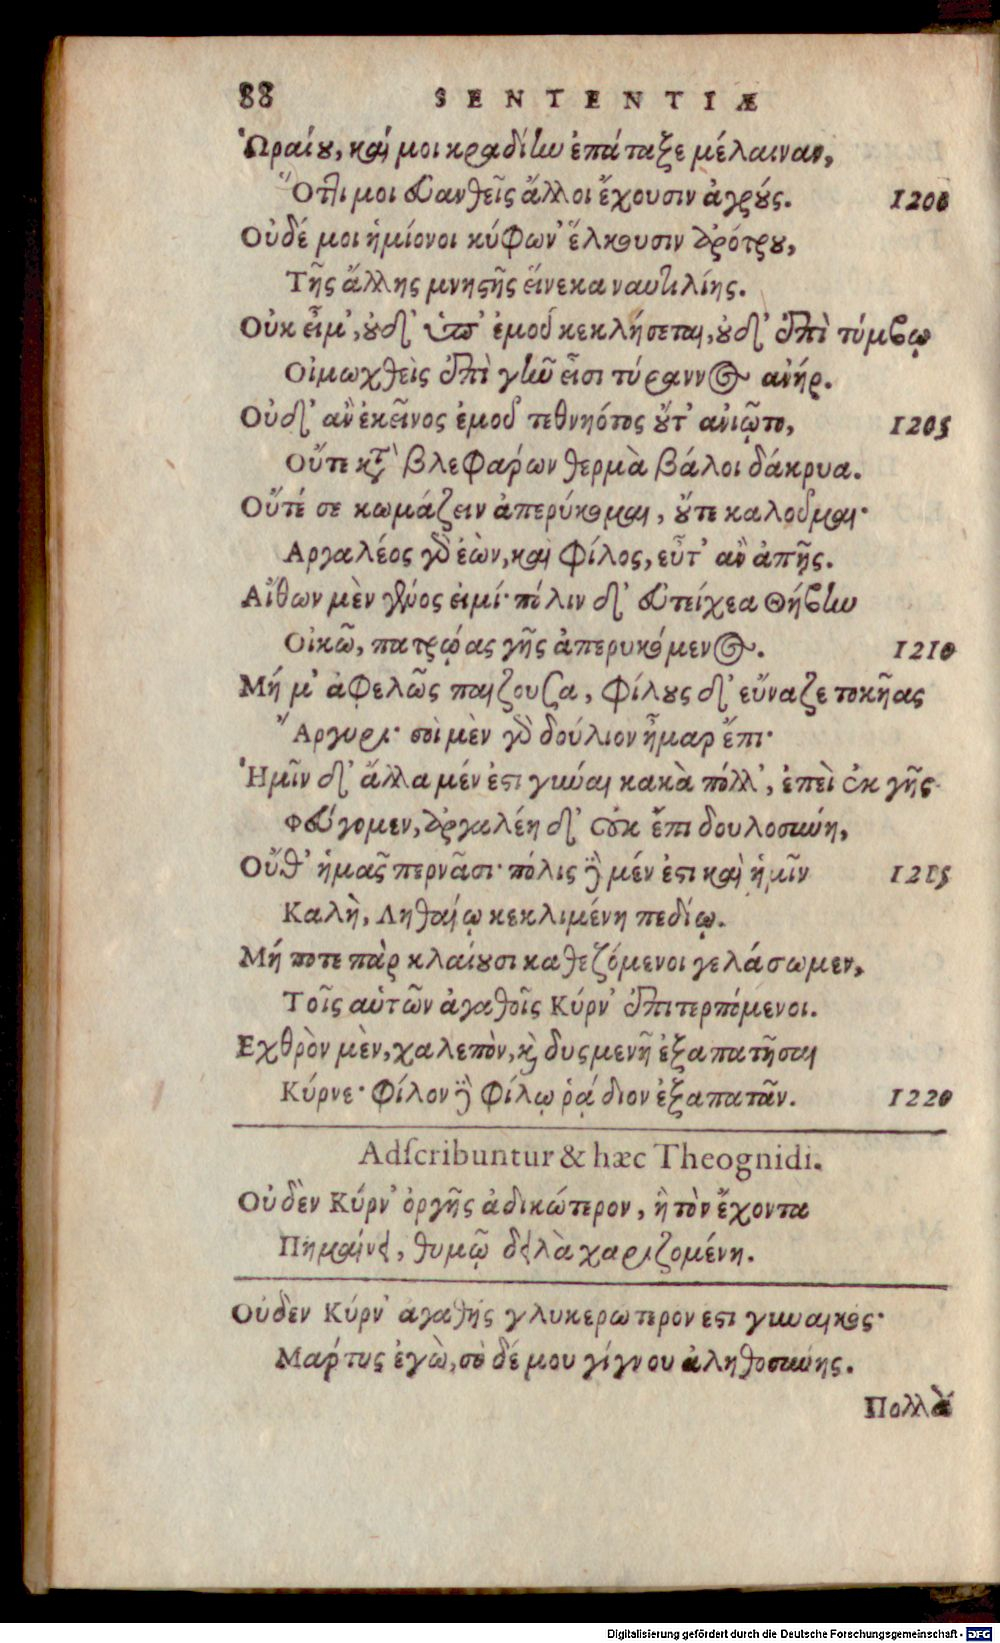 88 SENTENTIÆ
Ὡραίου, καί μοι κραδίην ἐπάταξε μέλαιναν,
Ὅττι μοι εὐανθεῖς ἄλλοι ἔχουσιν ἀγρούς. 1200
Οὐδέ μοι ἡμίονοι κύφων' ἕλκουσιν ἀρότρου,
Τῆς ἄλλης μνηστῆς εἵνεκα ναυτιλίης.
Οὐκ εἶμ', οὐδ' ὑπ' ἐμοῦ κεκλήσεται, οὐδ' ἐπὶ τύμβῳ
Οἰμωχθεὶς ἐπὶ γῆν εἶσι τύραννος ἀνήρ.
Οὐδ' ἂν ἐκεῖνος ἐμοῦ τεθνηότος οὔτ' ἀνιῷτο, 1205
Οὔτε κατὰ βλεφάρων θερμὰ βάλοι δάκρυα.
Οὔτέ σε κωμάζειν ἀπερύκομαι, οὔτε καλοῦμαι·
Αργαλέος γὰρ ἐὼν, καὶ φίλος, εὖτ' ἂν ἀπῇς.
Αἴθων μὲν γένος εἰμί· πόλιν δ' εὐτείχεα Θήβην
Οἰκῶ, πατρῴας γῆς ἀπερυκόμενος. 1210
Μή μ' ἀφελῶς παίζουσα, φίλους δ' εὔναζε τοκῆας
Ἄργυρι· σοὶ μὲν γὰρ δούλιον ἦμαρ ἔπι·
Ἡμῖν δ' ἄλλα μέν ἐστι γύναι κακὰ πόλλ', ἐπεὶ ἐκ γῆς
Φεύγομεν, ἀργαλέη δ' οὐκ ἔπι δουλοσύνη,
Οὔθ' ἡμᾶς περνᾶσι· πόλις γε μέν ἐστι καὶ ἡμῖν 1215
Καλὴ, Ληθαίῳ κεκλιμένη πεδίῳ.
Μή ποτε πὰρ κλαίουσι καθεζόμενοι γελάσωμεν,
Τοῖς αὐτῶν ἀγαθοῖς Κύρν' ἐπιτερπόμενοι.
Εχθρὸν μὲν, χαλεπὸν, καὶ δυσμενῆ ἐξαπατῆσαι
Κύρνε· φίλον δὲ φίλῳ ῥᾴδιον ἐξαπατᾶν. 1220
Adſcribuntur & hæc Theognidi.
Οὐδὲν Κύρν' ὀργῆς ἀδικώτερον, ἣ τὸν ἔχοντα
Πημαίνει, θυμῷ δειλὰ χαριζομένη.
Οὐδὲν Κύρν' ἀγαθῆς γλυκερώτερόν ἐστι γυναικός·
Μάρτυς ἐγὼ, σὺ δέ μου γίγνου ἀληθοσύνης.
Πολλὰ
Digitalisierung gefördert durch die Deutsche Forschungsgemeinschaft - DFG